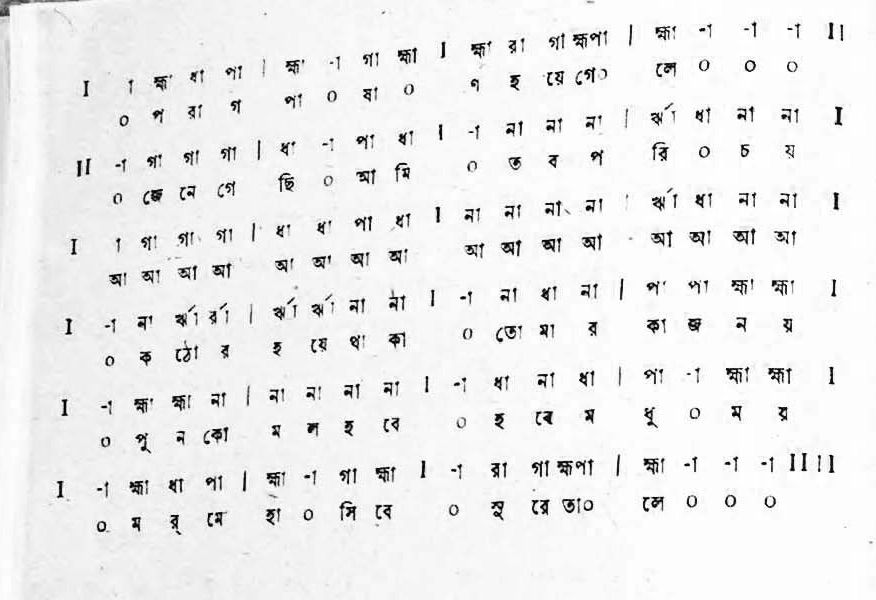 I া হ্মা ধা পা | হ্মা -া গা হ্মা I হ্মা রা গা হ্মপা | হ্মা -া -া -া II
০ প রা গ পা ০ ষা ০ ণ হ য়ে গে০ লে ০ ০ ০
II -া গা গা গা | ধা -া পা ধা I -া না না না | র্ঋা ধা না না I
০ জে নে গে ছি ০ আ মি ০ ত ব প রি ০ চ য়
I া গা গা গা | ধা ধা পা ধা I না না না না | র্ঋা ধা না না I
আ আ আ আ আ আ আ আ আ আ আ আ আ আ আ আ
I -া না র্ঋা র্রা | র্ঋা র্ঋা না না I -া না ধা না | পা পা হ্মা হ্মা I
০ ক ঠো র হ য়ে থা কা ০ তো মা র কা জ ন য়
I -া হ্মা হ্মা না | না না না না I -া ধা না ধা | পা -া হ্মা হ্মা I
০ পূ ন কো ম ল হ বে ০ হ বে ম ধু ০ ম য়
I -া হ্মা ধা পা | হ্মা -া গা হ্মা I -া রা গা হ্মপা | হ্মা -া -া -া II II
০ ম র্ মে হা ০ সি বে ০ সু রে তা০ লে ০ ০ ০